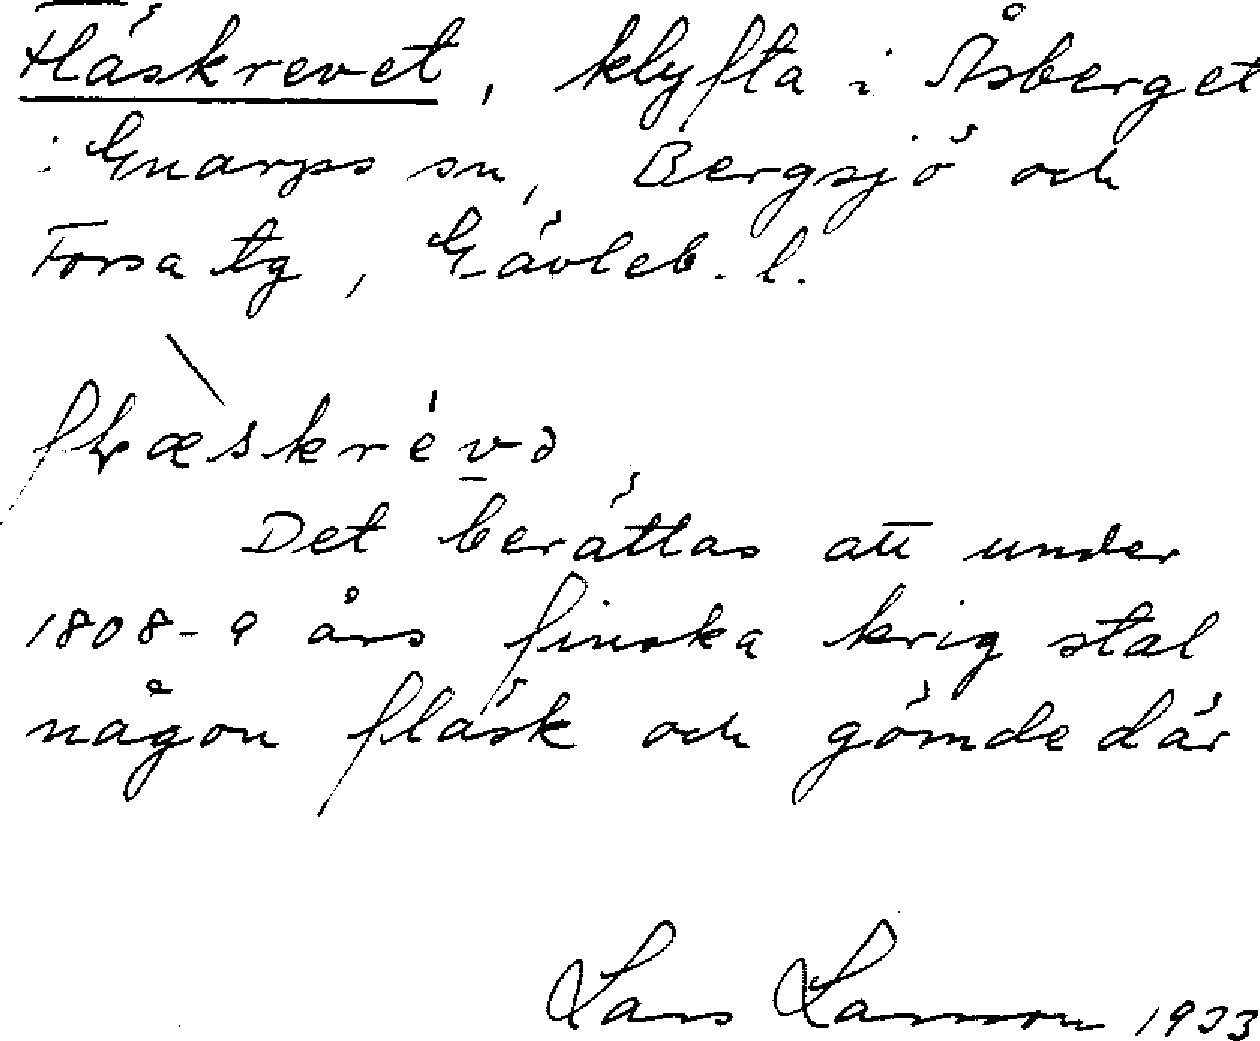 Fläskrevet, klyfta i Åsberget
i Gnarps sn, Bergsjö och
Forsa tg, Gävleb. l.
flæskrévə
Det berättas att under
1808-9 års finska krig stal
någon fläsk och gömde där
Lars Larsson 1933